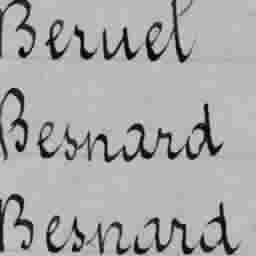 Beruel
Besnard
Besnard